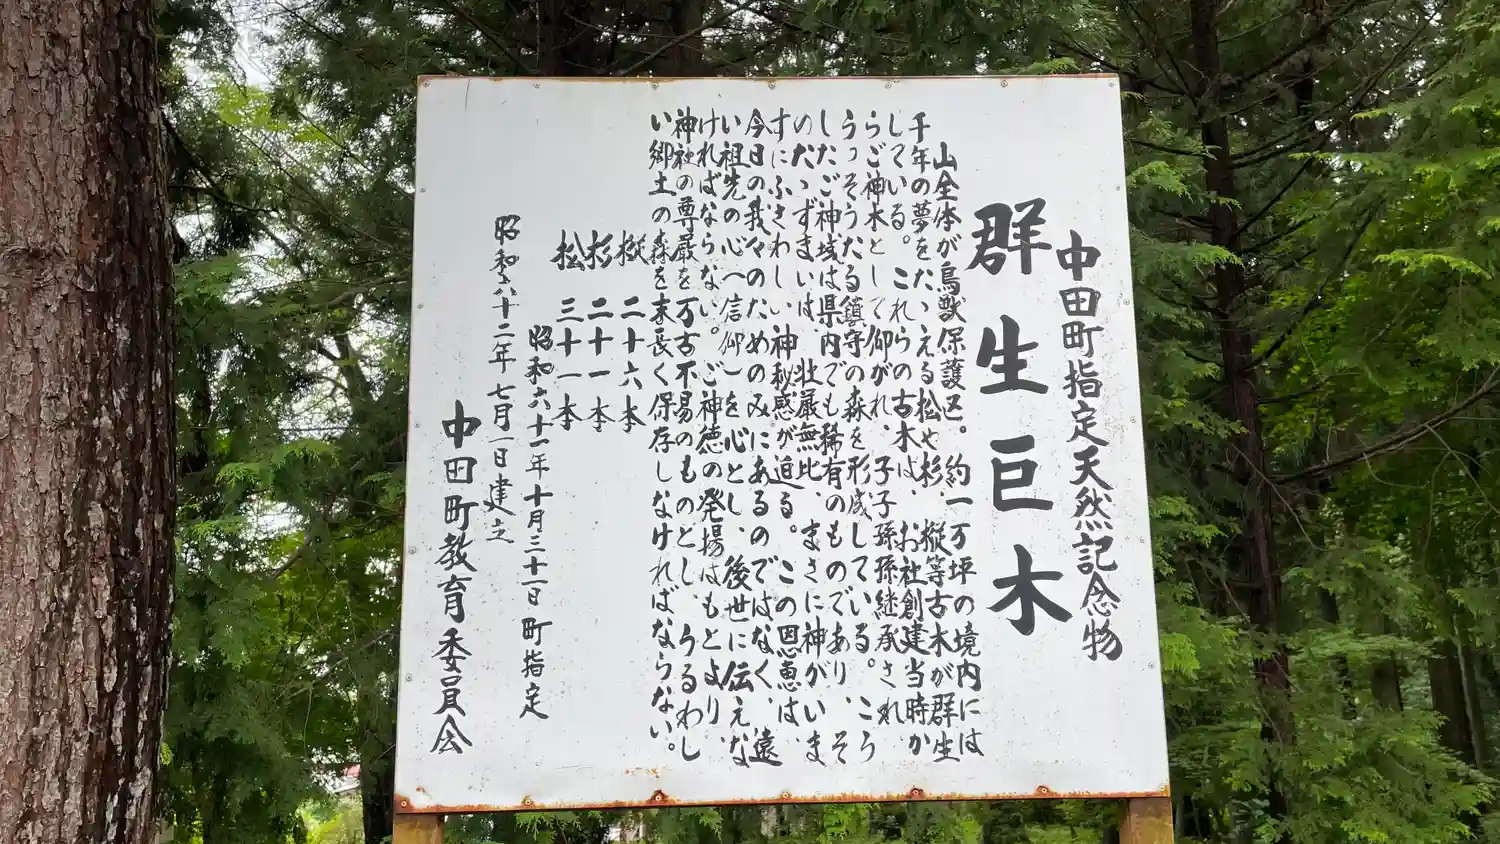 中田町指定天然記念物
群生巨木
山全体が鳥獣保護区。約一万坪の境内には
千年の夢をたゝえる松や杉、樅等古木が群生
している。これらの古木は、お社創建当時か
らご神木として仰がれ、子子孫孫継承され、
うっそうたる鎮守の森を形成している。こう
したご神域は県内でも稀有のものであり、そ
のたゝずまいは、壮厳無比、まさに神がいま
すにふさわしい神秘感が迫る。この恩恵は、
今日の我々のためのみにあるのではなく、遠
い祖先の心(信仰)を心とし、後世に伝えな
ければならない。ご神徳の発揚はもとより、
神社の尊厳を万古不易のものとし、うるわし
い郷土の森を末長く保存しなければならない。
樅 二十六本
杉 二十一本
松 三十一本
昭和六十一年十月三十一日町指定
昭和六十二年七月一日建之
中田町教育委員会